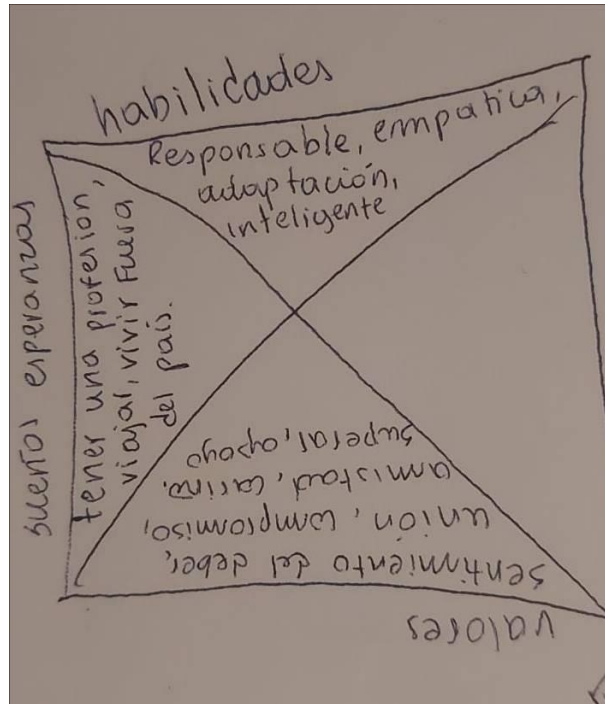 habilidades
Responsable, empatica,
adaptación,
inteligente
sueños esperanzas
tener una profesión,
viajar, vivir Fuera
del país.
valores
sentimiento del deber,
unión, compromiso,
amistad, cariño,
superar, apoyo